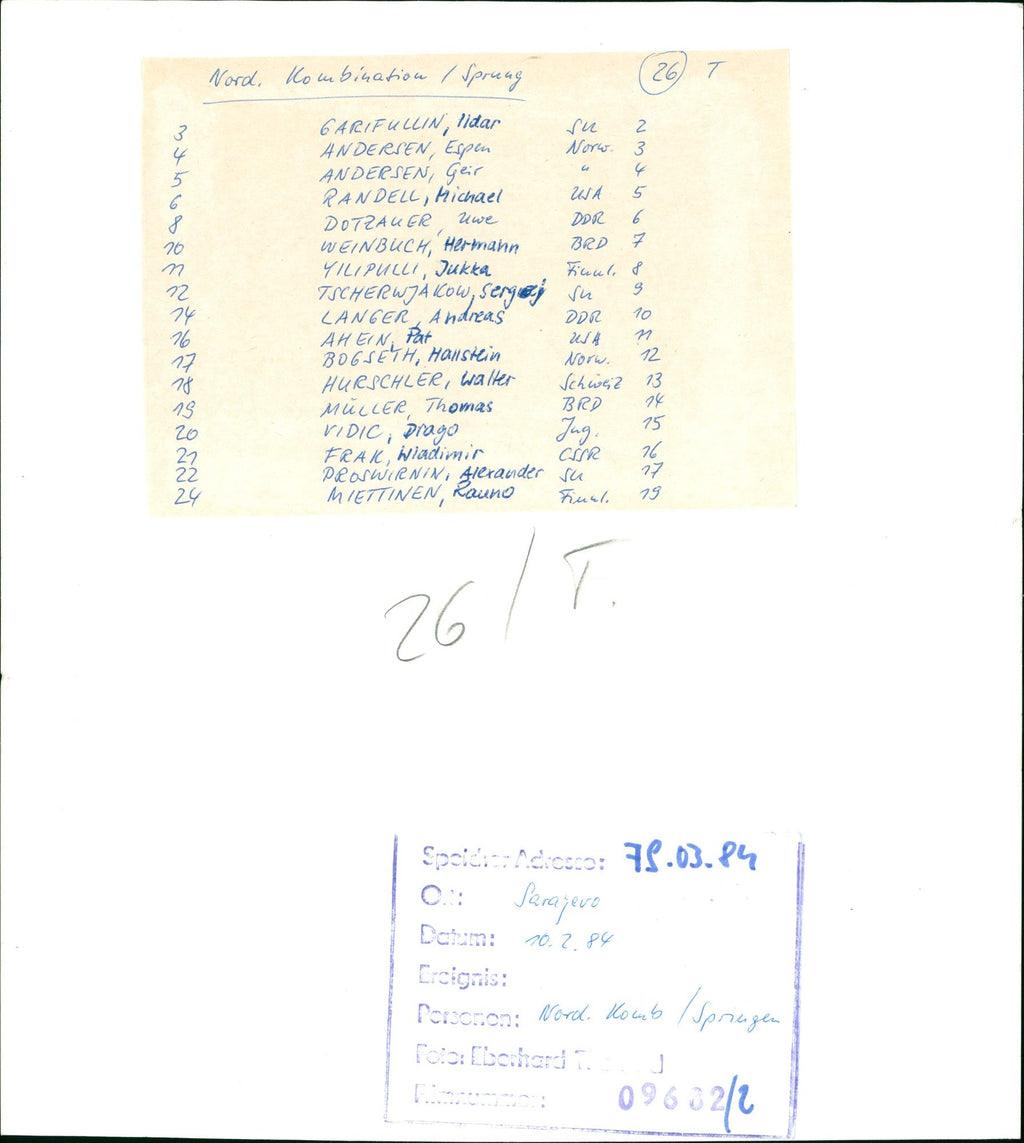 Nord. Kombination / Sprung 26 T
3 GARIFULLIN, Ildar SU 2
4 ANDERSEN, Espen Norw. 3
5 ANDERSEN, Geir " 4
6 RANDELL, Michael USA 5
8 DOTZAUER, Uwe DDR 6
10 WEINBUCH, Hermann BRD 7
11 YILIPULLI, Jukka Finnl. 8
12 TSCHERWJAKOW, Sergej SU 9
14 LANGER, Andreas DDR 10
16 AHEIN, Pat USA 11
17 BOGSETH, Hallstein Norw. 12
18 HURSCHLER, Walter Schweiz 13
19 MÜLLER, Thomas BRD 14
20 VIDIC, Drago Jug. 15
21 FRAK, Wladimir CSSR 16
22 PROSWIRNIN, Alexander SU 17
24 MIETTINEN, Rauno Finnl. 19
26 / T.
Speicher Adresse: 79.03.84
Ort: Sarajevo
Datum: 10.2.84
Ereignis:
Personen: Nord. Komb / Springen
Foto: Eberhard
Filmnummer: 09682/2